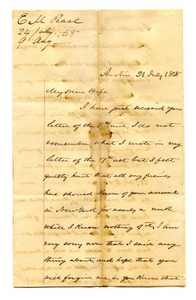 E M Pease
24 July, 68
Austin 21 July 1868
My Dear Wife
I have just received your
letter of the inst, I do not
remember what I wrote in my
letter of the 7th but I felt
guilty hurt that all my friends
here should know of your arrival
in New York for nearly a week
while I knew nothing of it, I am
very sorry now that I said any
thing about and hope that you
will forgive me as you know that